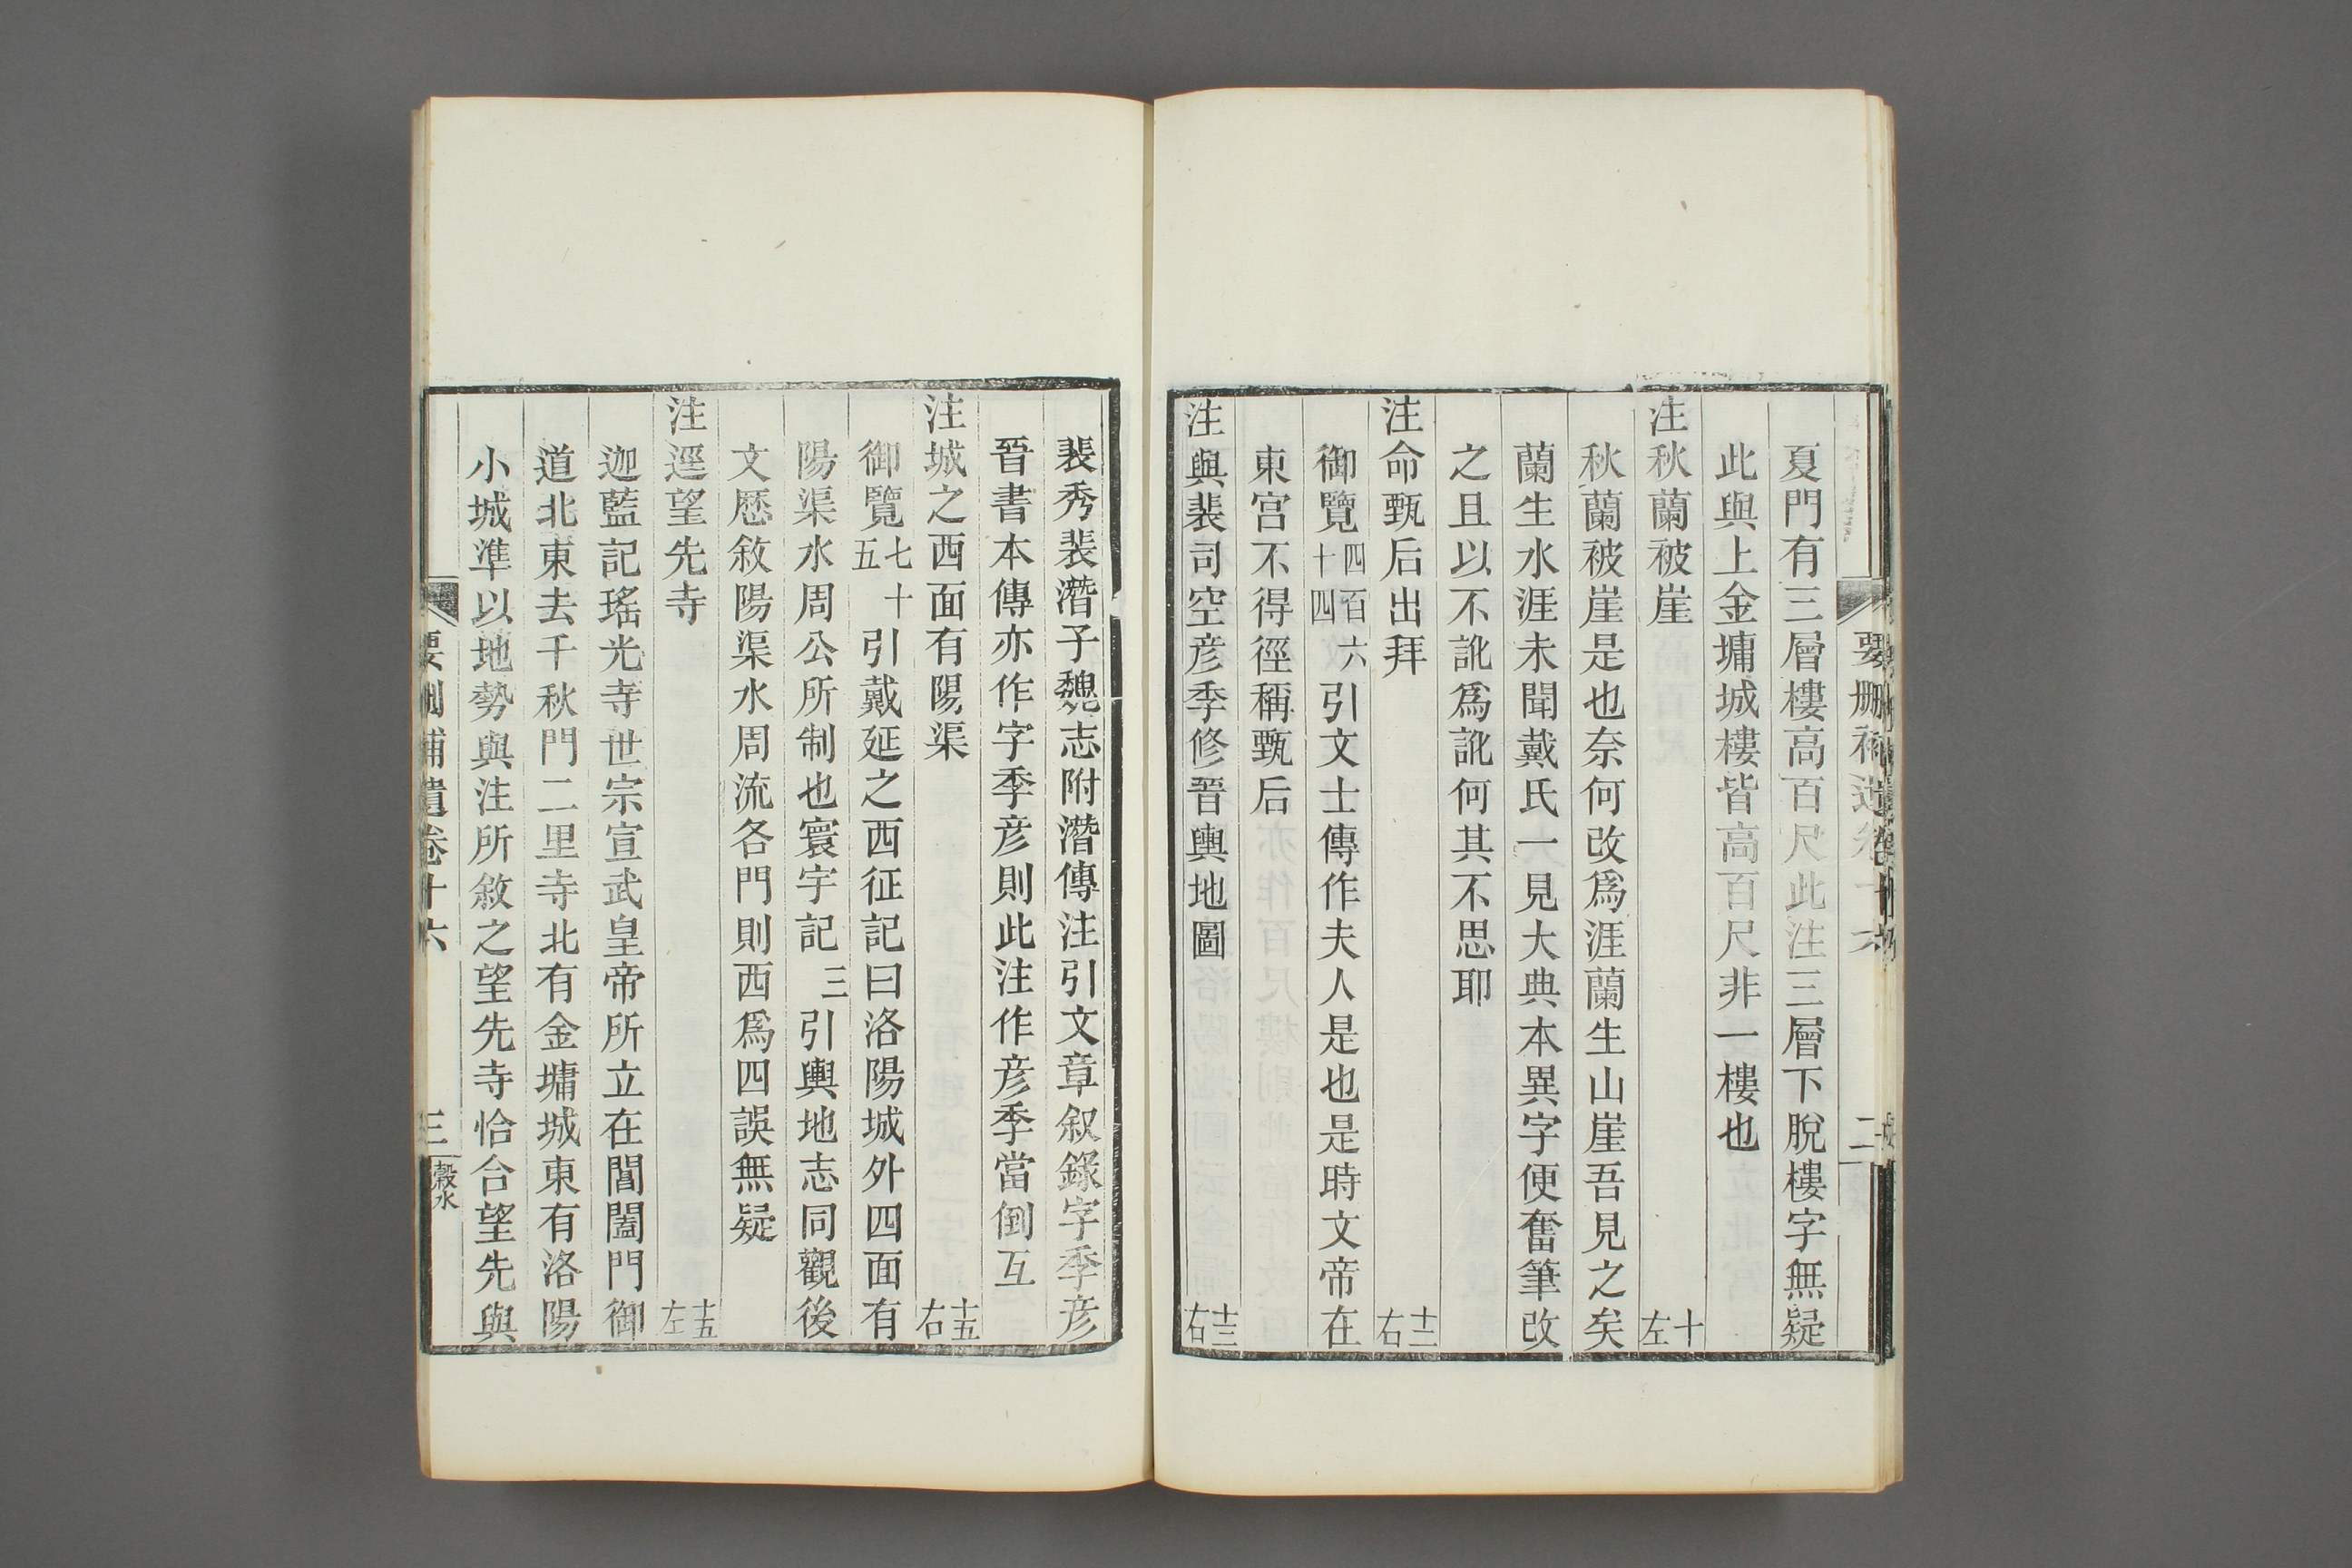 夏門有三層樓高百尺此注三層下脫樓字無疑
此與上金墉城樓皆高百尺非一樓也
注秋蘭被崖 十左
秋蘭被崖是也奈何改爲涯蘭生山崖吾見之矣
蘭生水涯未聞戴氏一見大典本異字便奮筆改
之且以不訛爲訛何其不思耶
注命甄后出拜 十二右
御覽四百六十四引文士傳作夫人是也是時文帝在
東宫不得徑稱甄后
注與裴司空彦季修晉輿地圖 十三右
裴秀裴潛子魏志附潛傳注引文章叙錄字季彦
晉書本傳亦作字季彦則此注作彦季當倒互
注城之西面有陽渠 十五右
御覽七十五引戴延之西征記曰洛陽城外四面有
陽渠水周公所制也寰宇記三引輿地志同觀後
文厯敘陽渠水周流各門則西爲四誤無疑
注逕望先寺 十五左
迦藍記瑤光寺世宗宣武皇帝所立在閶闔門御
道北東去千秋門二里寺北有金墉城東有洛陽
小城準以地勢與注所敘之望先寺恰合望先與
要刪補遺卷十六 三 穀水